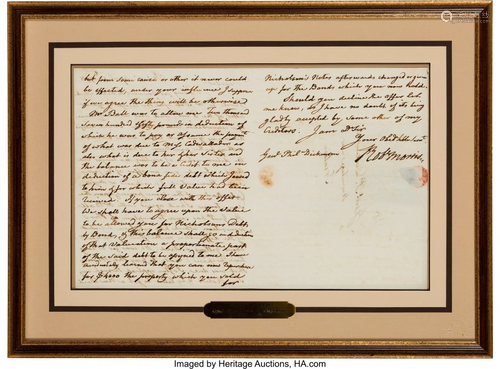 but from some cause or other it never could
be effected, under your influence I suppose
if you agree the thing will be otherwise
Mr Ball was to allow me Ten thousand
Seven hundred fifty pounds in deduction of
which he was to pay or assume the payment
of what was due to Mrs Cadwalader as
also what is due to her Sister and
the balance was to be paid to me in
deduction of a bona fide debt which I owed
to him & for which full Value had been
received. If you close with this offer
We shall have to agree upon the Value
to be allowed you for Nicholsons Debt,
by Bond, & this balance shall go in deduction
of that Valuation a proportionate part
of the said debt to be assigned to me
accidentally learnd that you can now
for the property which you sold
for
Nicholson's Notes afterwards changed or given
up for the Bonds which you now hold.
Should you decline the offer let
me know, as I have no doubt of its being
gladly accepted by some other of my
creditors. I am Dr Sir
Your Obed hble Servt
Robt Morris
Genl Phil Dickinson
Imaged by Heritage Auctions, HA.com